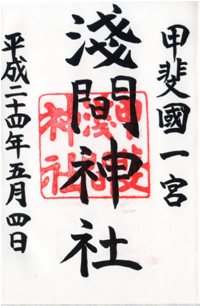 甲斐國一宮
淺間神社
平成二十四年五月四日